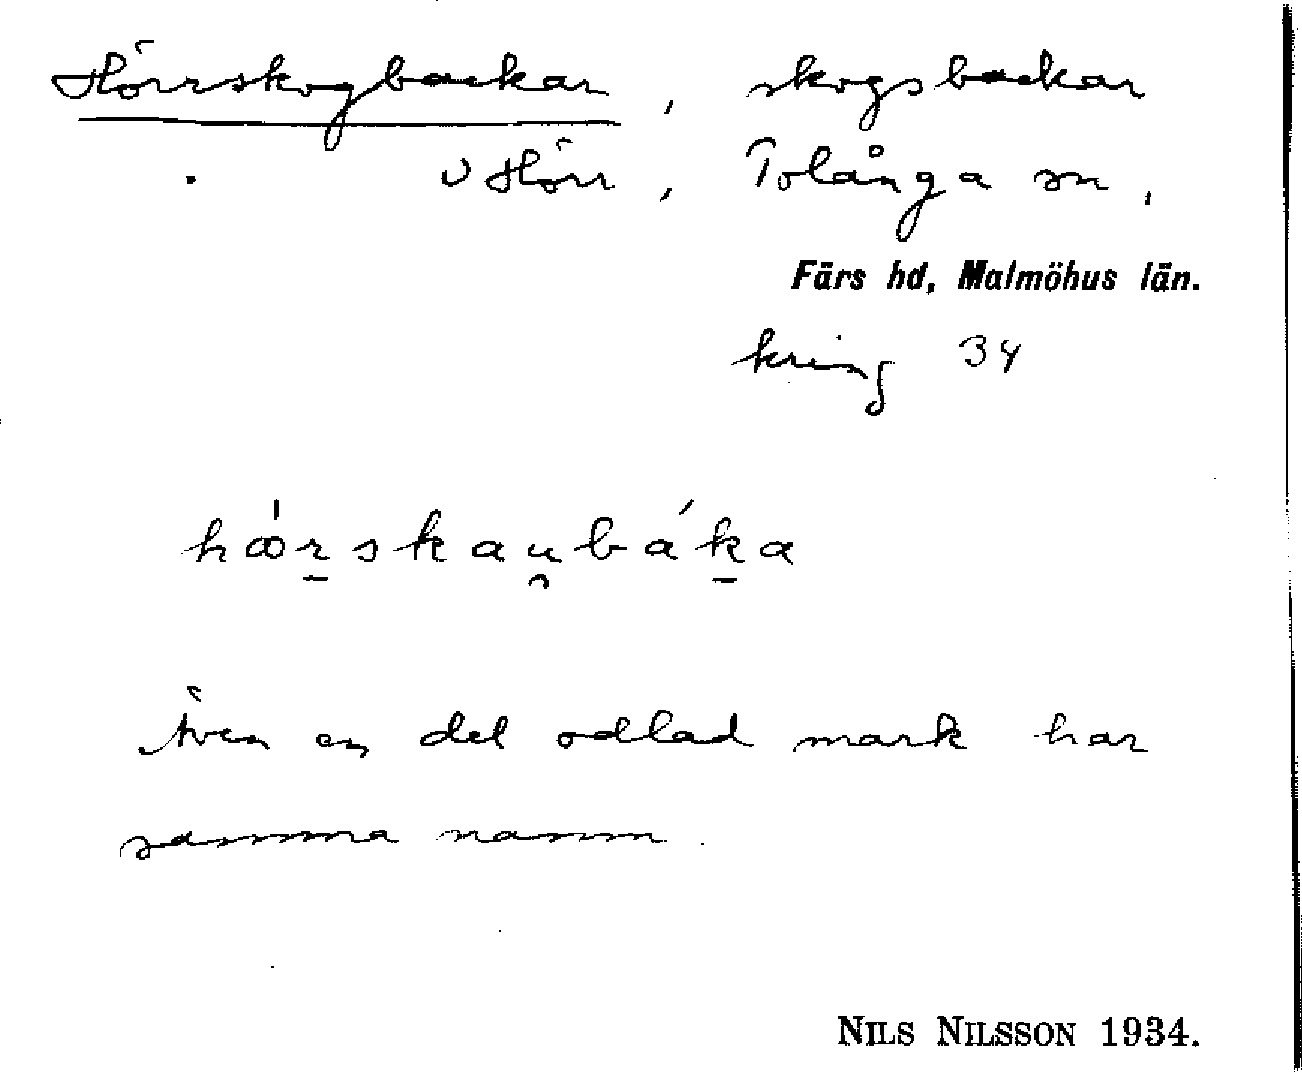 Hörrskogbackar, skogsbackar
v Hörr, Tolånga sn,
Färs hd, Malmöhus län.
kring 34
hœ́rskau̯báka
Även en del odlad mark har
samma namn.
NILS NILSSON 1934.